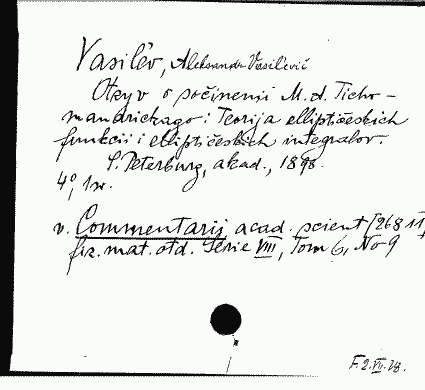 Vasilěv, Aleksandr Vasilěvič
Otzyv o sočinenii M. A. Ticho-
mandrickago: Teorija elliptičeskich
funkcii i elliptičeskich integralov.
S. Peterburg, akad., 1898.
4°, 1 sv.
v. Commentarij acad. scient [268 11]
fiz. mat. otd. Serie VIII, Tom 6, No 9
F. 2. VII. 28.